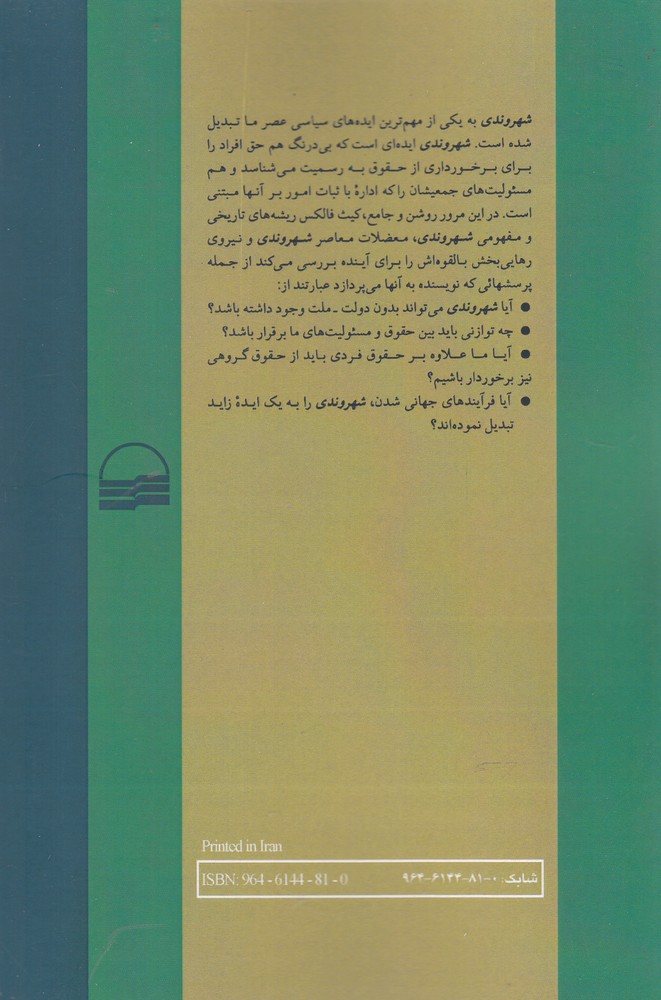 شهروندی به یکی از مهم‌ترین ایده‌های سیاسی عصر ما تبدیل
شده است. شهروندی ایده‌ای است که بی‌درنگ هم حق افراد را
برای برخورداری از حقوق به رسمیت می‌شناسد و هم
مسئولیت‌های جمعیشان را که ادارهٔ با ثبات امور بر آنها مبتنی
است. در این مرور روشن و جامع، کیث فالکس ریشه‌های تاریخی
و مفهومی شهروندی، معضلات معاصر شهروندی و نیروی
رهایی‌بخش بالقوه‌اش را برای آینده بررسی می‌کند از جمله
پرسشهائی که نویسنده به آنها می‌پردازد عبارتند از:
● آیا شهروندی می‌تواند بدون دولت - ملت وجود داشته باشد؟
● چه توازنی باید بین حقوق و مسئولیت‌های ما برقرار باشد؟
● آیا ما علاوه بر حقوق فردی باید از حقوق گروهی
نیز برخوردار باشیم؟
● آیا فرآیندهای جهانی شدن، شهروندی را به یک ایدهٔ زاید
تبدیل نموده‌اند؟
Printed in Iran
ISBN: 964 - 6144 - 81 - 0 شابک: ۰-۸۱-۶۱۴۴-۹۶۴